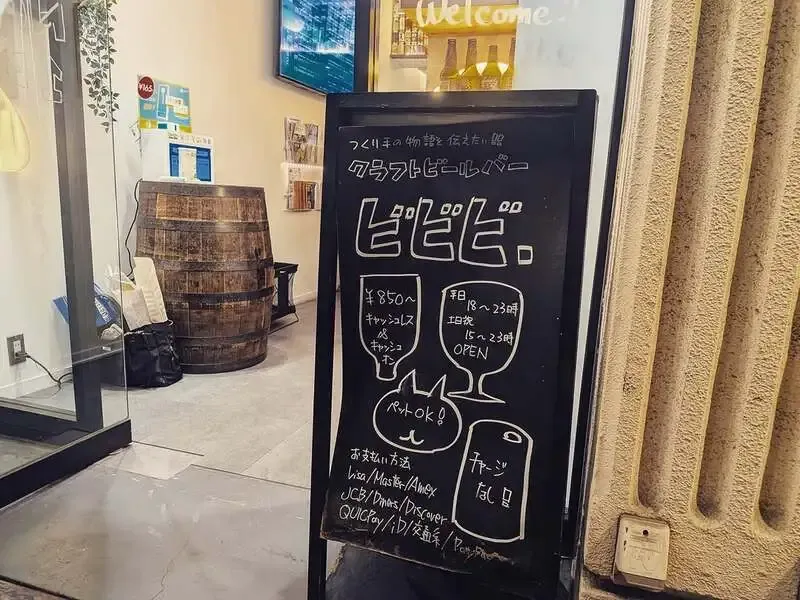 Welcome
¥165
つくり手の物語を伝えたい
クラフトビールバー
ビビビ.
¥850〜
キャッシュレス
&
キャッシュ
オン
平日
18〜23時
土日祝
15〜23時
OPEN
ペットOK!
チャージ
なし!!
お支払い方法
Visa/Master/Amex
JCB/Diners/Discover
QUICPay/iD/交通系/